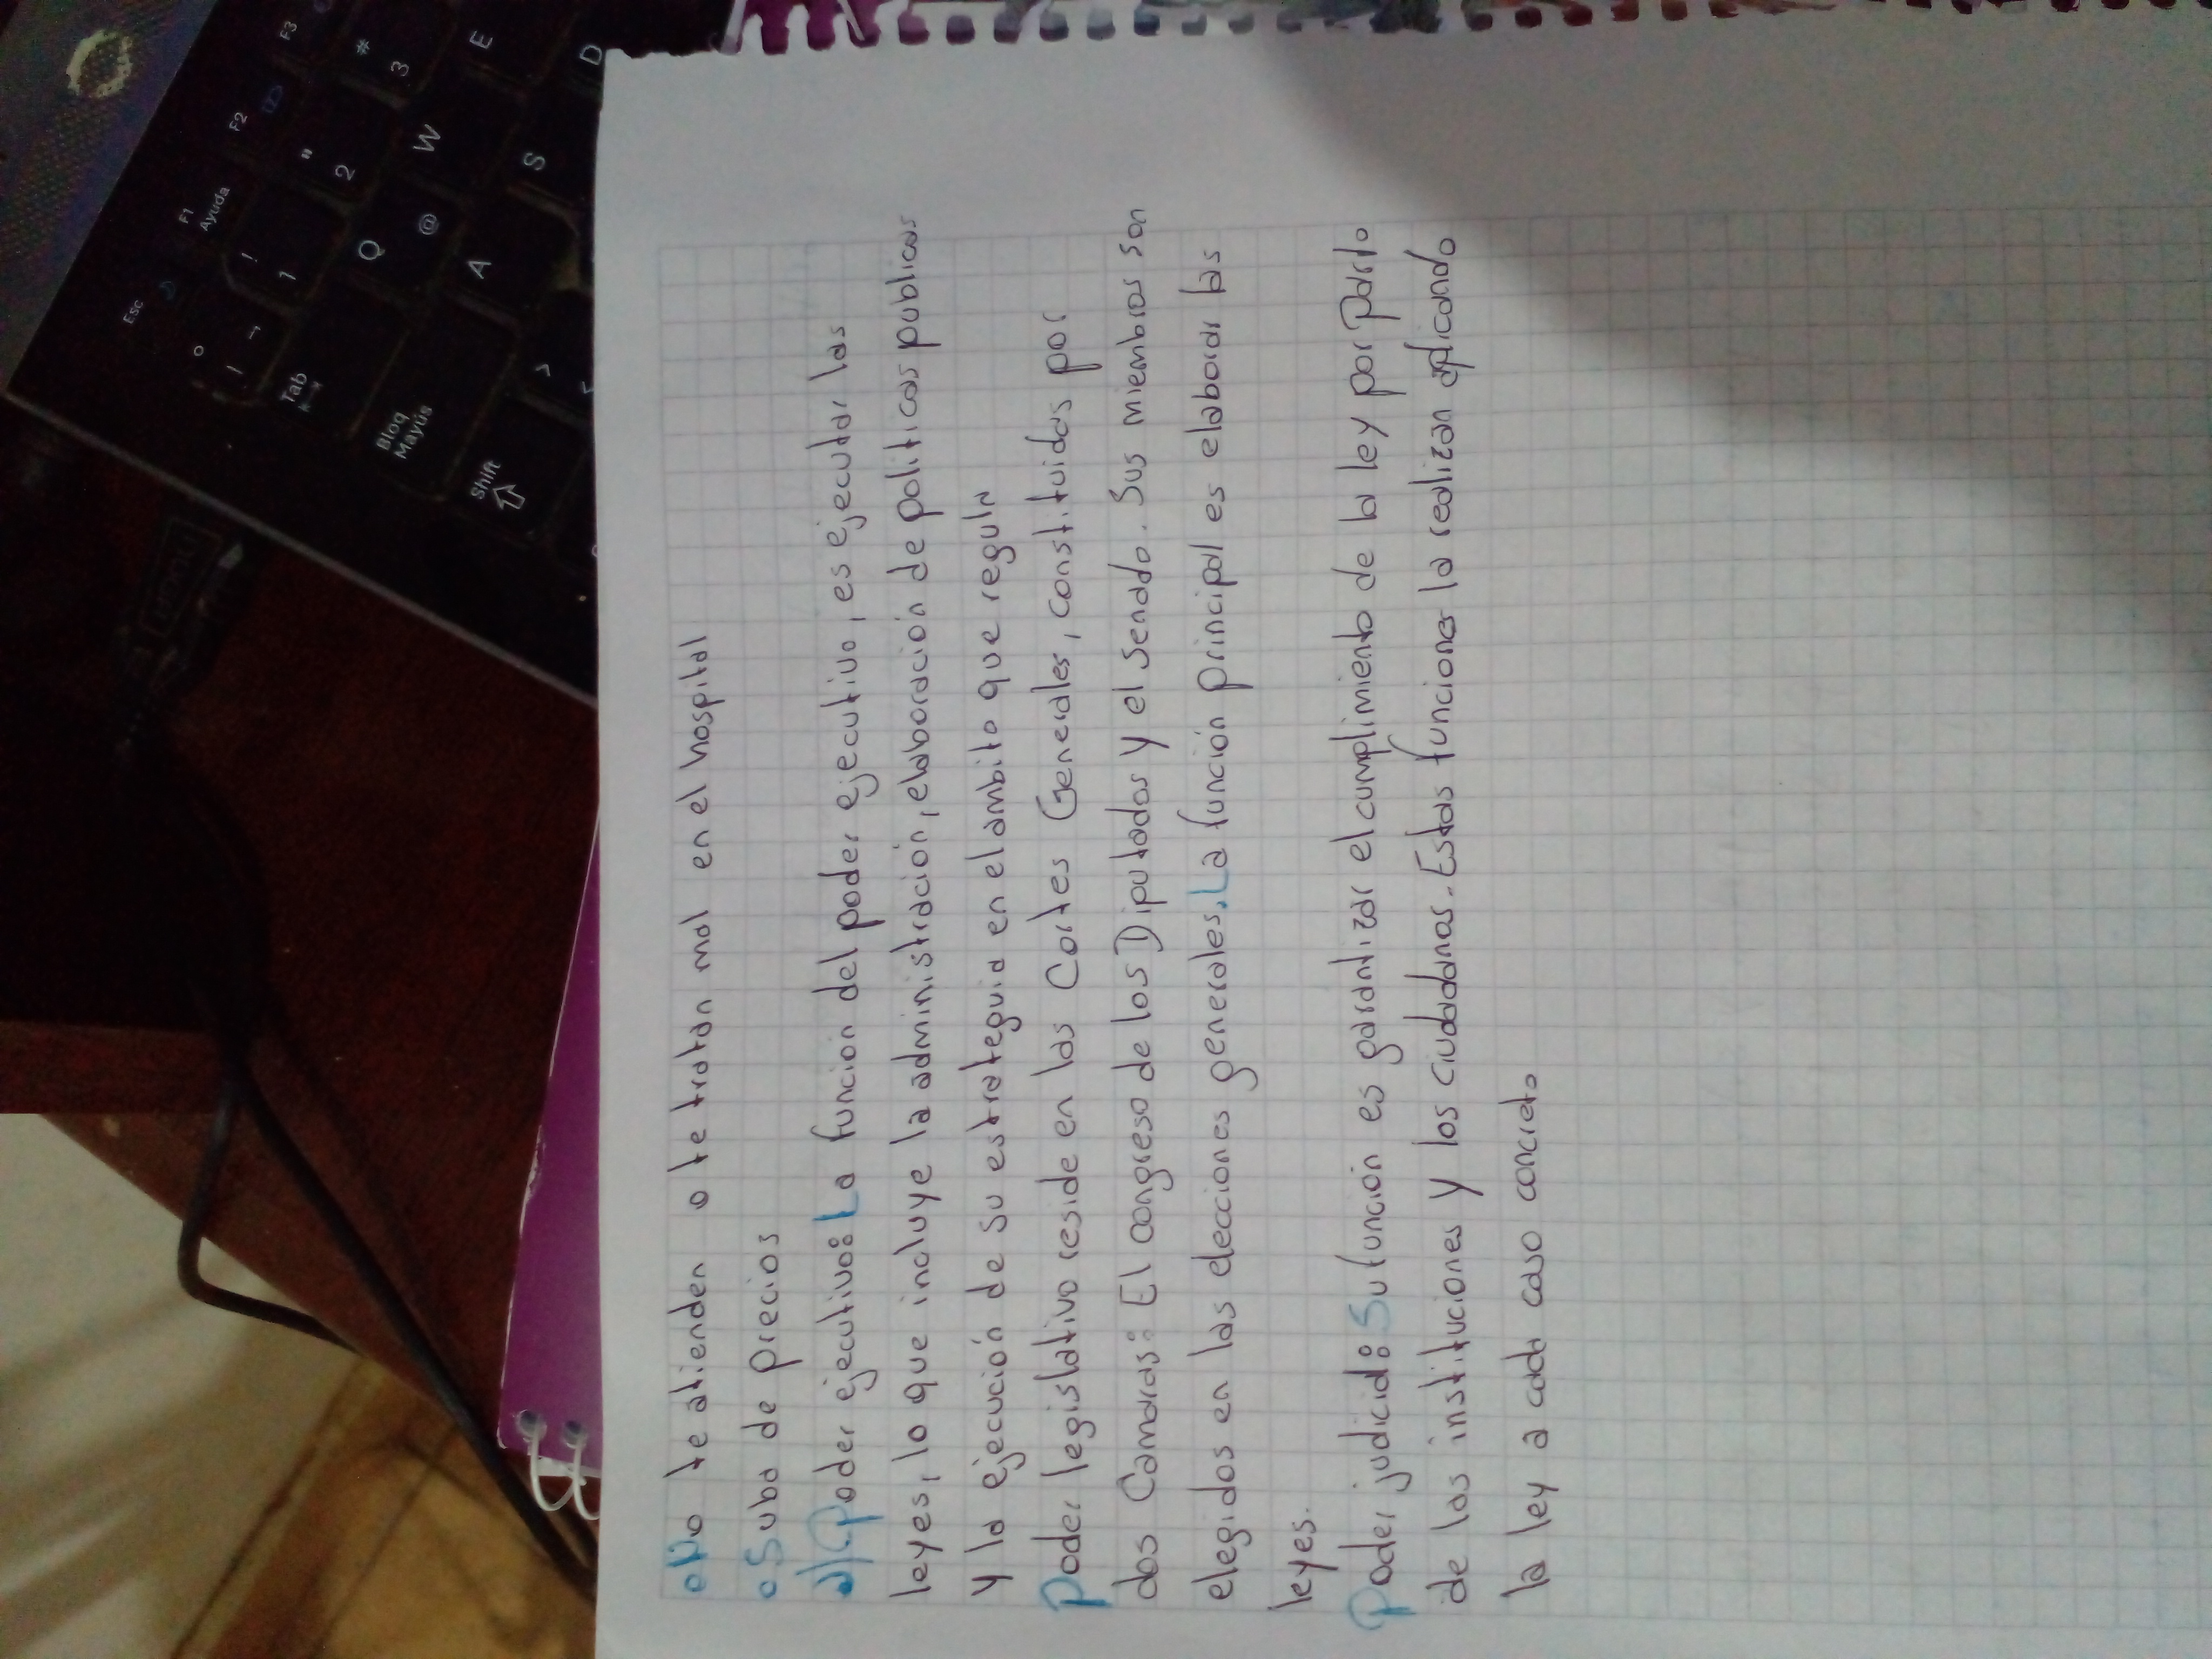 o No te atienden o te tratan mal en el hospital
o Suba de precios
a) Poder ejecutivo: La funcion del poder ejecutivo, es ejecutar las
leyes, lo que incluye la administración, elaboración de politicas publicas
y la ejecución de su estrateguia en el ambito que regula
Poder legislativo reside en las Cortes Generales, constituidas por
dos Camaras: El congreso de los Diputados y el Senado. Sus miembros son
elegidos en las elecciones generales. La función principal es elaborar las
leyes.
Poder judicial: Su función es garantizar el cumplimiento de la ley por parte
de las instituciones y los ciudadanos. Estas funciones la realizan aplicando
la ley a cada caso concreto
Esc
F1
Ayuda
F2
F3
!
1
"
2
#
3
Tab
Q
@
W
E
Bloq
Mayús
A
S
D
Shift
>
<